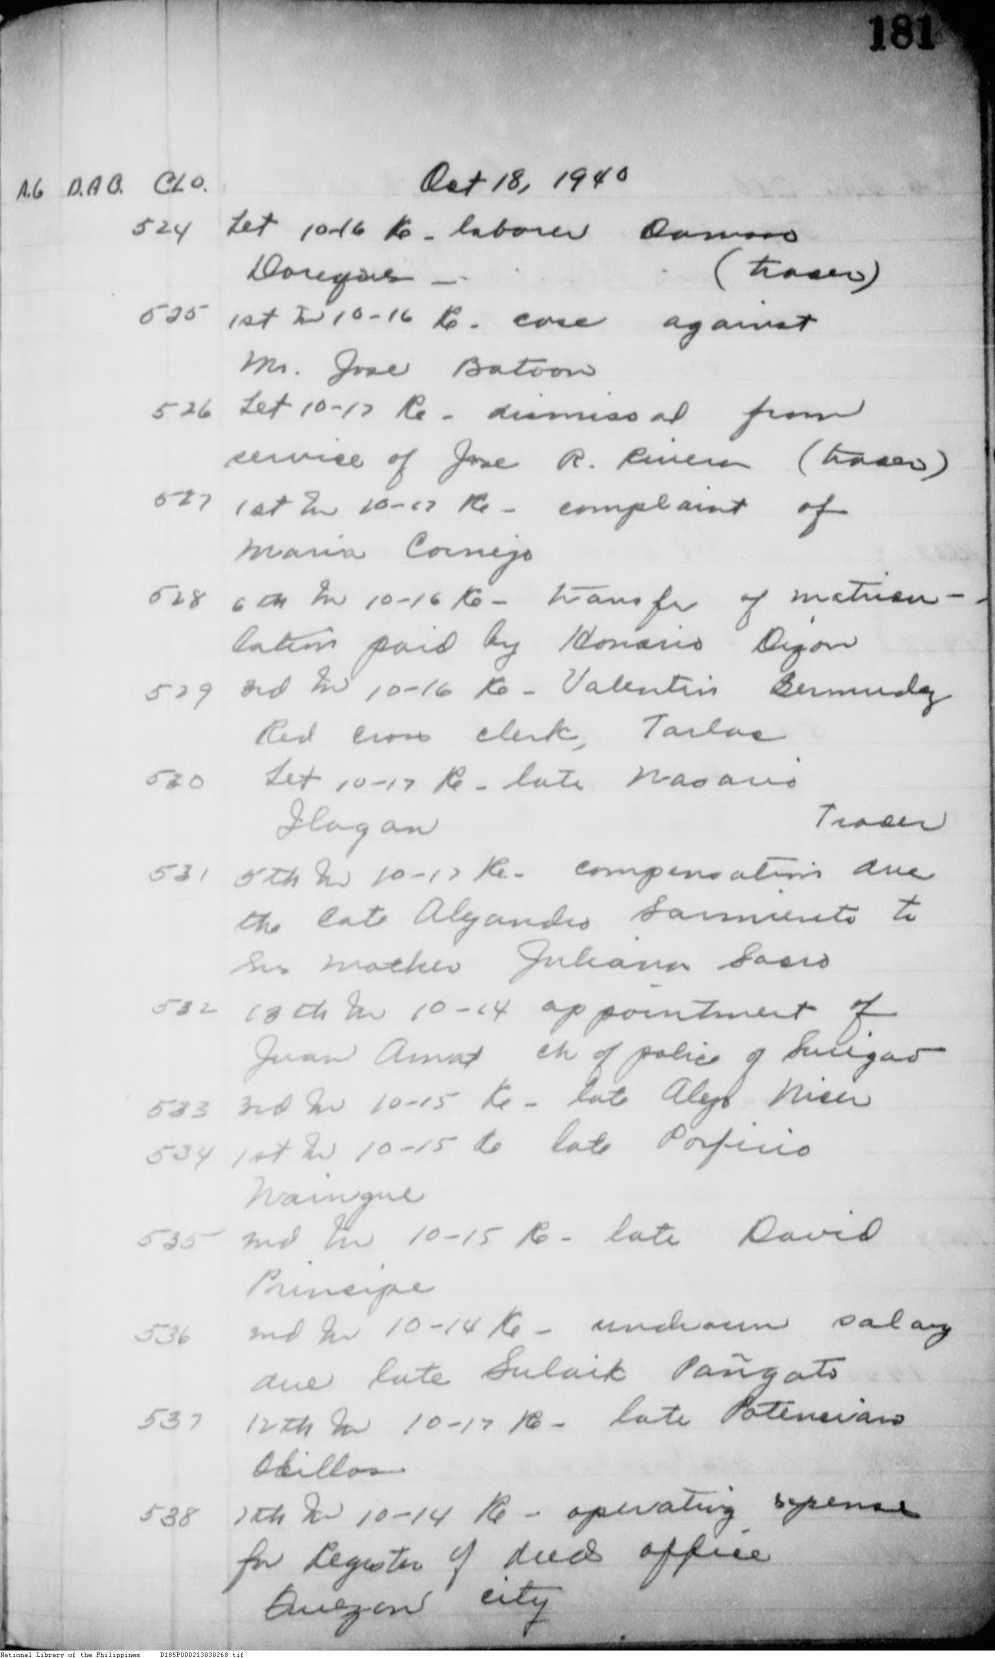 181
A.G D.A.O. CLO. Oct 18, 1940
524 Let 10-16 Re - laborer Damaso
(tracer)
525 1st In 10-16 Re - case against
Mr. Jose Batoon
526 Let 10-17 Re - dismissal from
service of Jose R. Rivera (tracer)
527 1st In 10-17 Re - complaint of
Maria Cornejo
528 6th In 10-16 Re - transfer of matricu-
lation paid by Honorio Dizon
529 3rd In 10-16 Re - Valentin Bermudez
Red cross clerk, Tarlac
530 Let 10-17 Re - late Nasario
Ilagan Tracer
531 5th In 10-17 Re - compensation due
the late Alejandro Sarmiento to
his mother Juliana
532 13th In 10-14 appointment of
Juan Amat ch of police of Surigao
533 3rd In 10-15 Re - late Alejo
534 1st In 10-15 Re late Porfirio
Waingue
535 2nd In 10-15 Re - late David
Principe
536 2nd In 10-14 Re - undrawn salary
due late Sulaik Pañgato
537 12th In 10-17 Re - late Potenciano
Obillos
538 7th In 10-14 Re - operating expense
for Register of deeds office
Quezon city
National Library of the Philippines D185P000213030268.tif